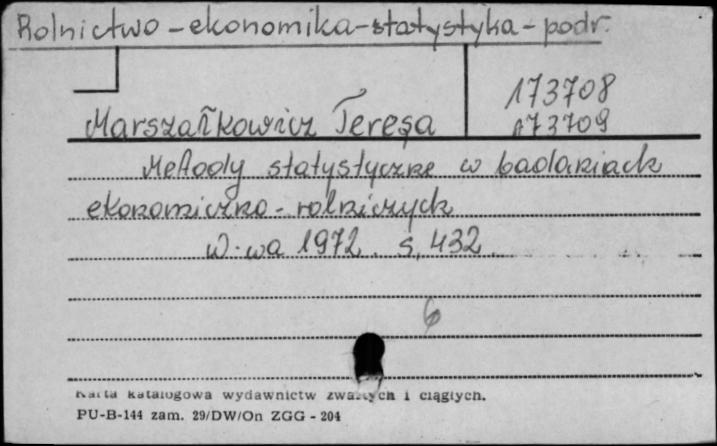 Rolnictwo - ekonomika - statystyka - podr.
173708
Marszałkowicz Teresa 173709
Metody statystyczne w badaniach
ekonomiczno - rolniczych
W-wa 1972. s. 432
6
Karta katalogowa wydawnictw zwartych i ciągłych.
PU-B-144 zam. 29/DW/On ZGG - 204